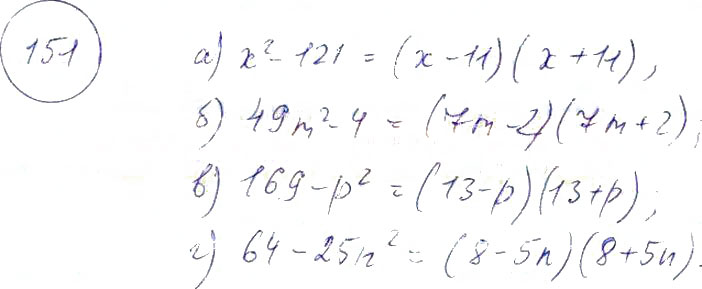 151
а) x² - 121 = (x - 11)(x + 11),
б) 49m² - 4 = (7m - 2)(7m + 2);
в) 169 - p² = (13 - p)(13 + p);
г) 64 - 25n² = (8 - 5n)(8 + 5n).